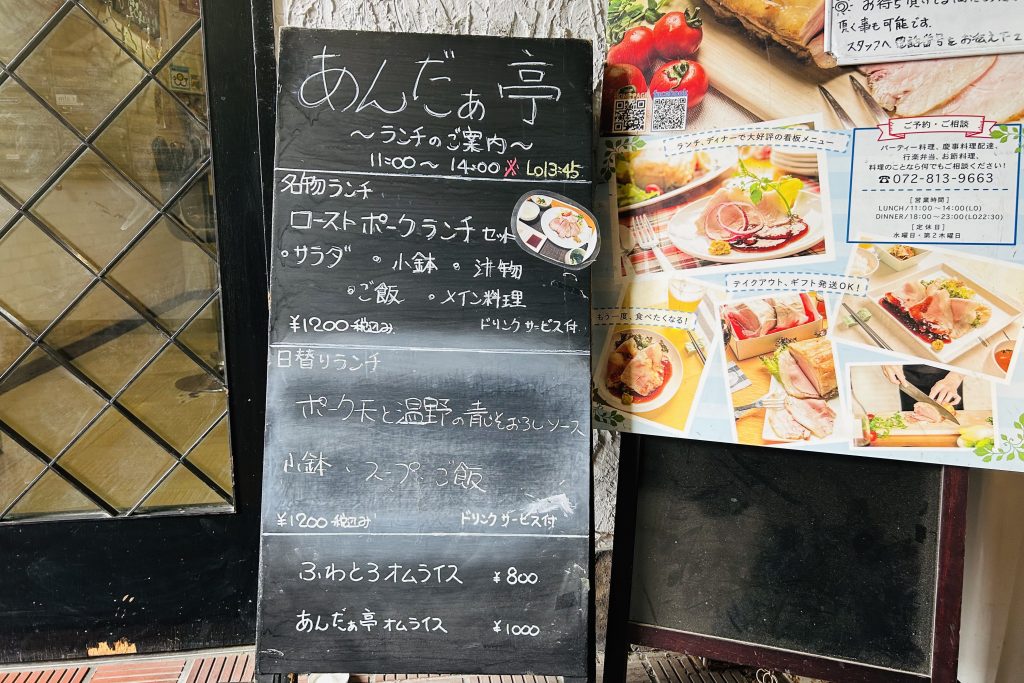 あんだぁ亭
～ランチのご案内～
11:00～14:00 ※ LO13:45
名物ランチ
ローストポークランチセット
・サラダ ・小鉢 ・漬物
・ご飯 ・メイン料理
¥1200 税込み ドリンクサービス付
日替りランチ
ポーク天と温野の青じそおろしソース
小鉢、スープ、ご飯
¥1200 税込み ドリンクサービス付
ふわとろオムライス ¥800
あんだぁ亭オムライス ¥1000
頂く事も可能です。
スタッフへ電話番号をお伝え下
ランチ、ディナーで大好評の看板メニュー
ご予約・ご相談
パーティー料理、慶事料理配達、
行楽弁当、お節料理、
料理のことなら何でもご相談ください!
☎072-813-9663
[営業時間]
LUNCH/11:00～14:00(LO)
DINNER/18:00～23:00(LO22:30)
[定休日]
水曜日・第2木曜日
テイクアウト、ギフト発送OK!
もう一度、食べたくなる!